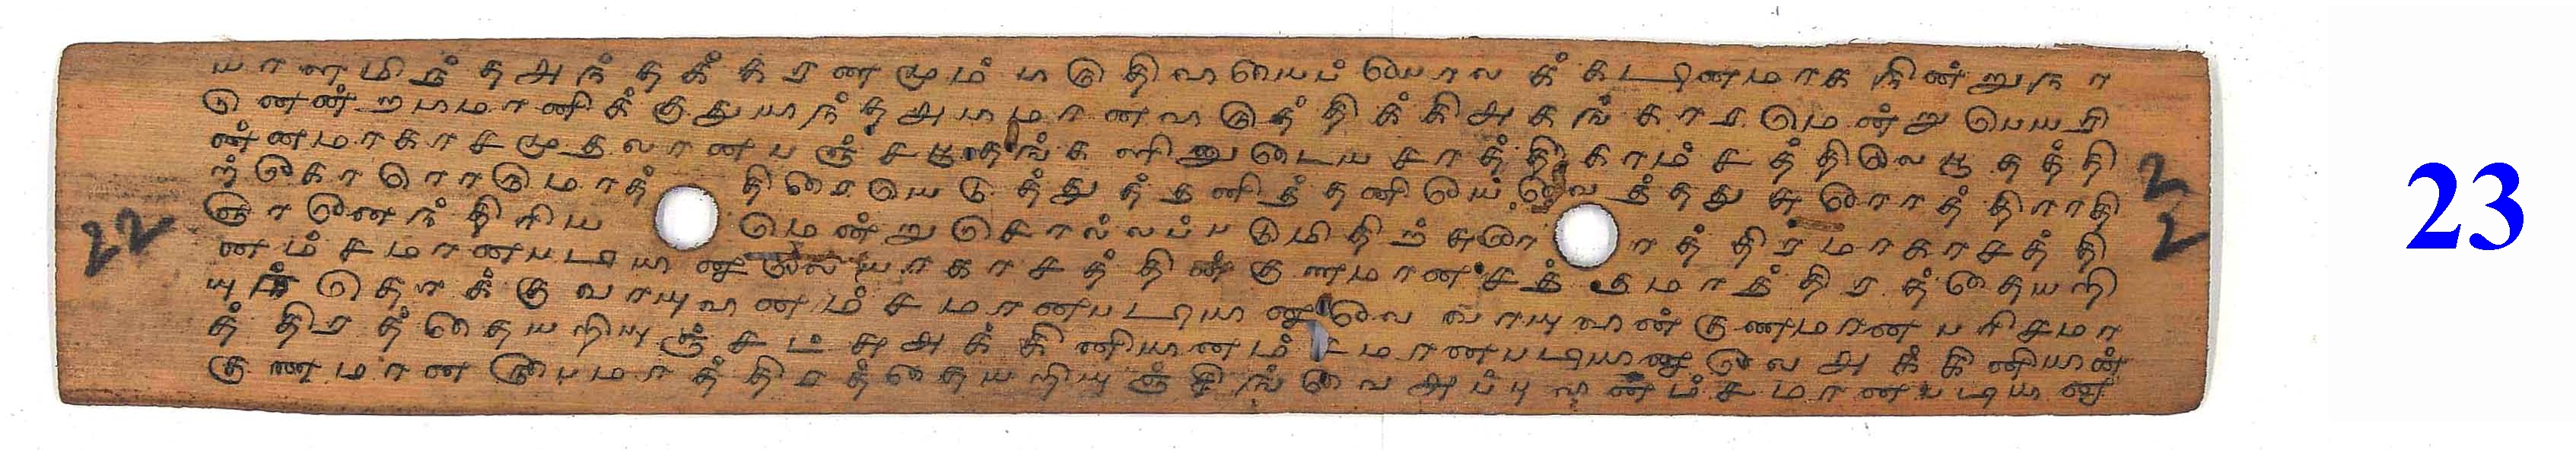 யானமிருந்த அந்தக்கரணமும் படுதிவயைப் போலக் கடினமாக நின்றுநா
னென்றபமானிக்குதுயாந்த அபமானவடுத்திக்கி அகங்காரமென்று பெயரி
ன்னமாகாசமுதலான பஞ்சபூதங்களினுடைய சாத்திகாம்சத்திலெ பூதத்தி
ற்கொரொரு மாத்திரையெடுத்துத் தனித்தனியெய் வைத்தது சுரொத்திராதி
ஞானெந்திரிய மென்று சொல்லப்படுமிதிற் சுரொத்திரமாகாசத்தி
னம்சமானபடியானாலெ யாகாசத்தின் குணமான சத்தமாத்திரத்தையறி
யுந் தொக்கு வாயுவனம்சமானபடியானாலெ வாயுவன் குணமான பரிசமா
த்திரத்தையறியுஞ் சட்சு அக்கினியானம்சமானபடியானாலெ அக்கினியன்
குணமான ரூபமாத்திரத்தையறியுஞ் சிங்ஙவை அப்புவனம்சமானபடியானா
22
22
23